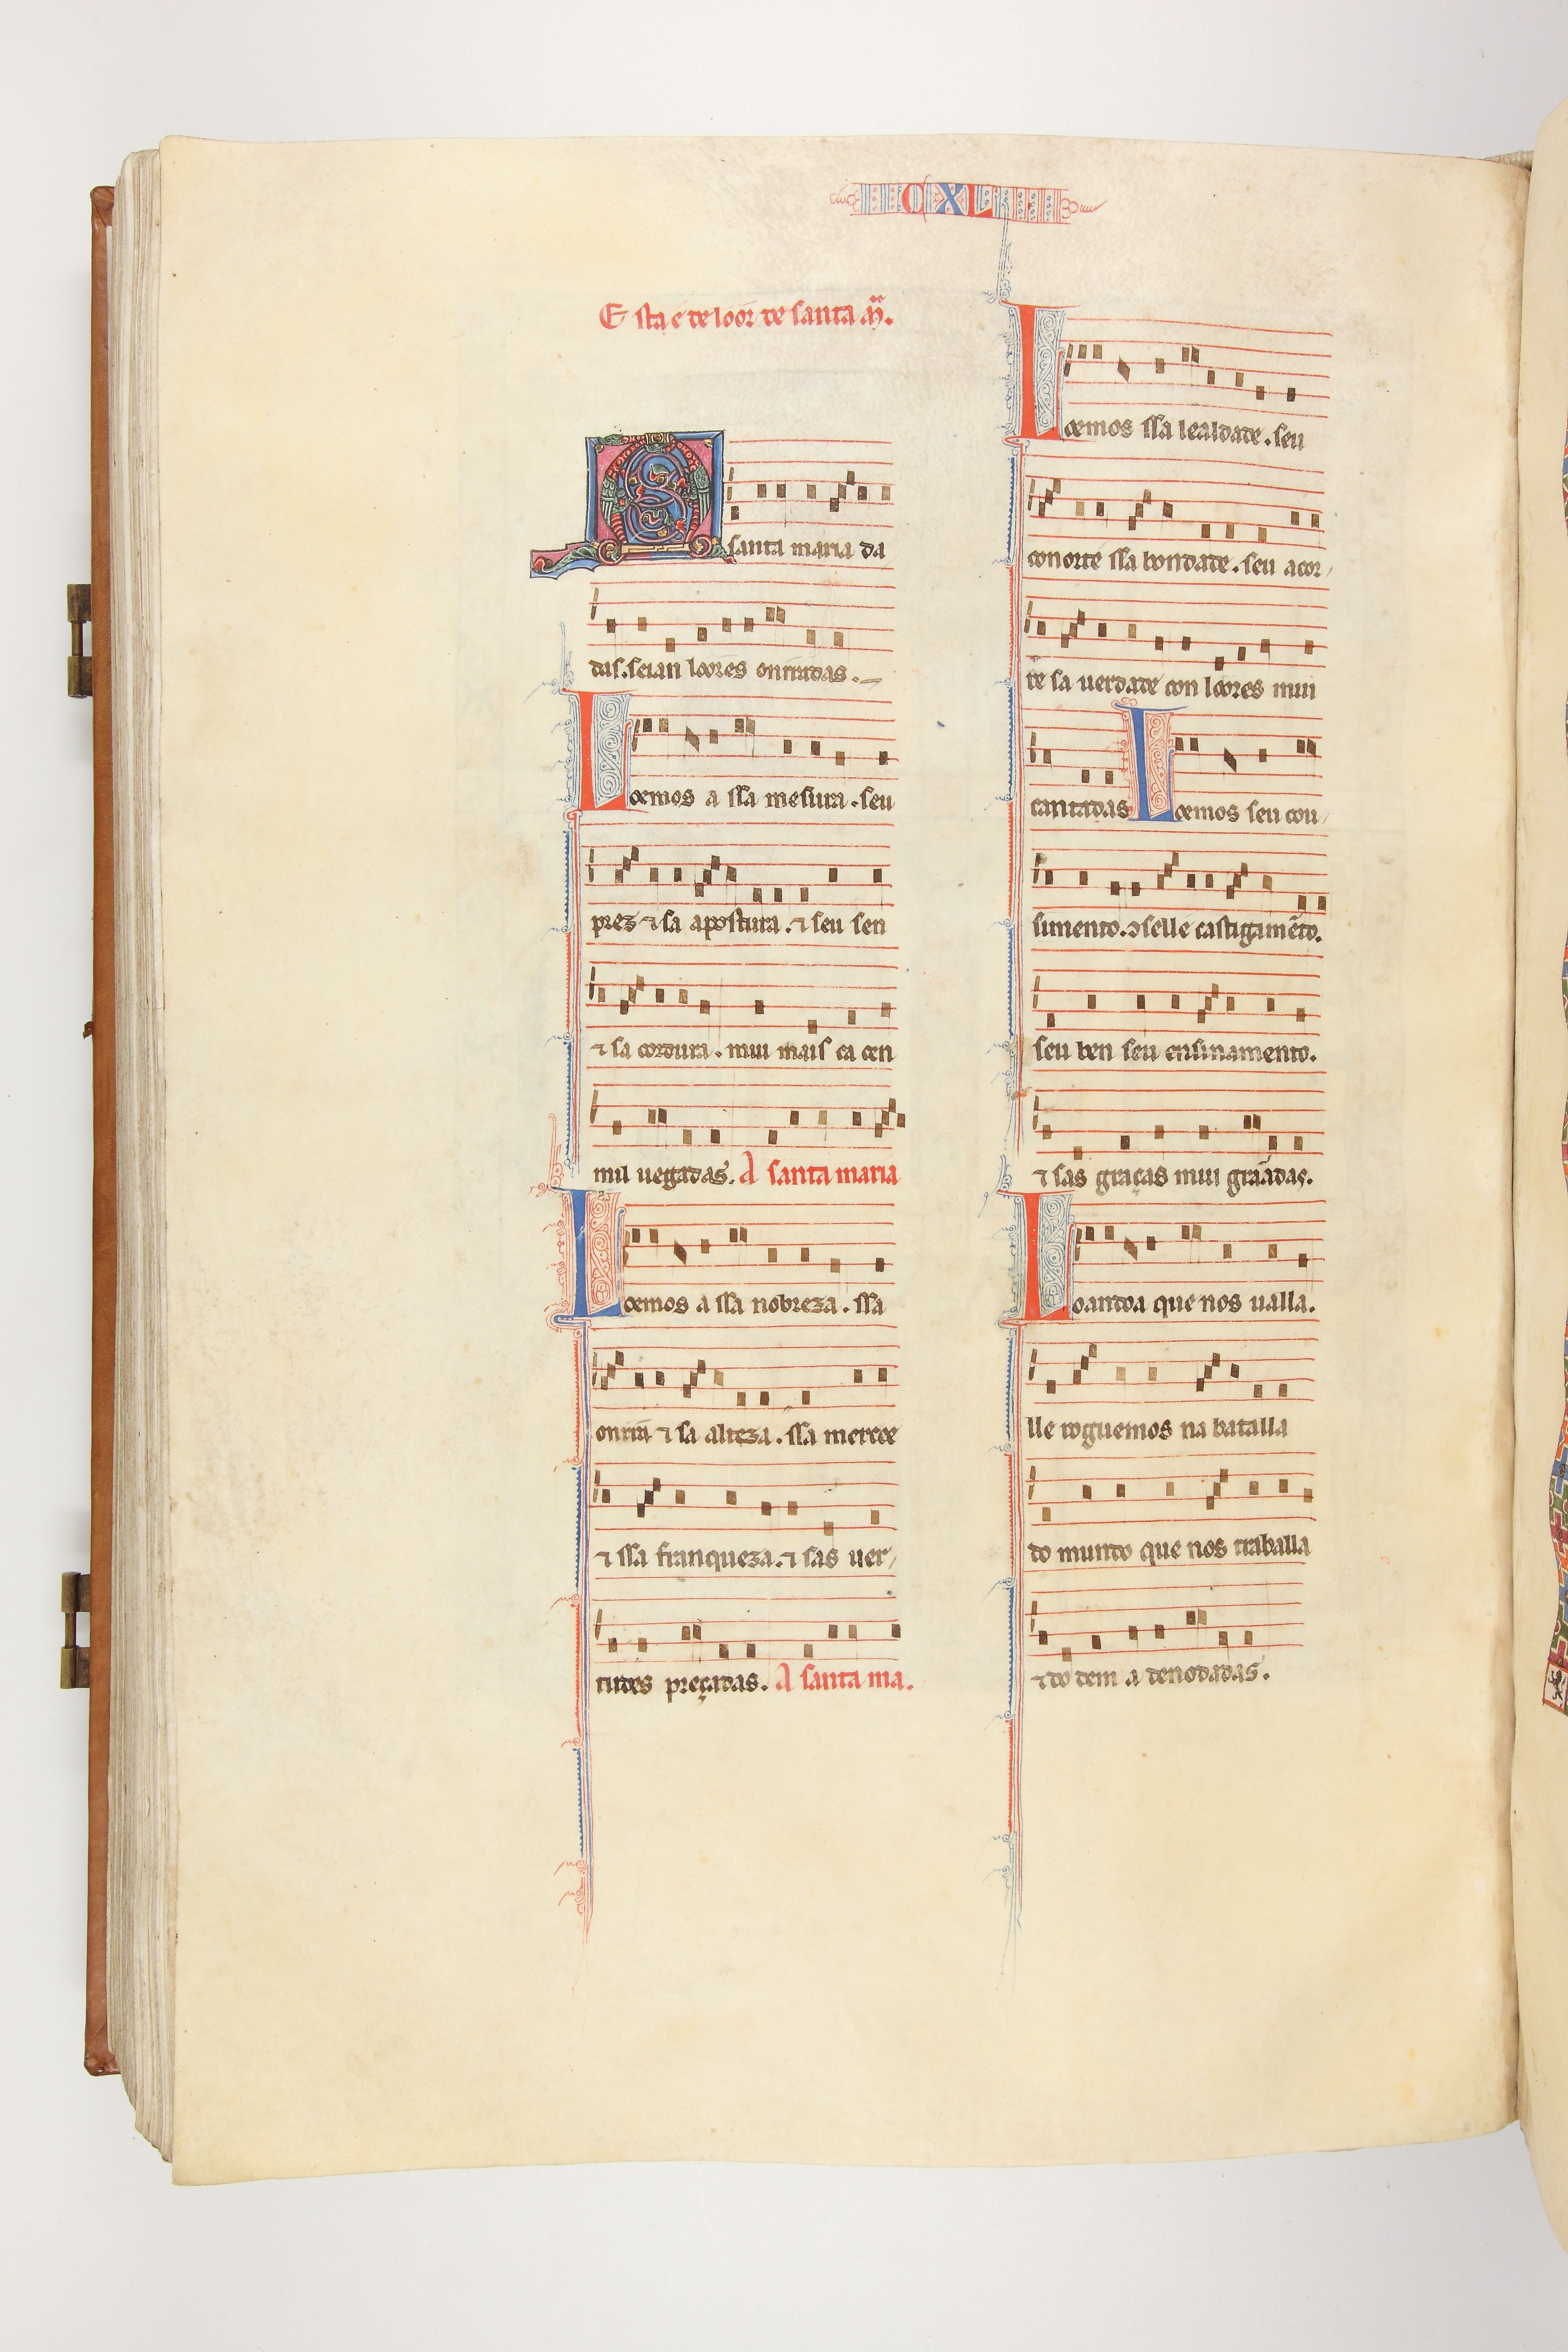 CXL
Esta e de loor de santa mª.
A santa maria da
das. seian loores onrradas.
Loemos a ssa mesura. seu
prez ⁊ sa apostura. ⁊ seu sen
⁊ sa cordura. mui mais ca cen
mil uegadas. A santa maria
Loemos a ssa nobreza. ssa
onrra ⁊ sa alteza. ssa mercee
⁊ ssa franqueza. ⁊ sas uer/
tudes preçadas. A santa ma.
Loemos ssa lealdade. seu
conorte ssa bondade. seu acor/
re sa uerdade con loores mui
cantadas Loemos seu cou/
simento. ↄsselle castigamẽto.
seu ben seu ensinamento.
⁊ sas graças mui grãadas.
Loandoa que nos ualla.
lle roguemos na batalla
do mundo que nos traballa
⁊ do dem a denodadas.